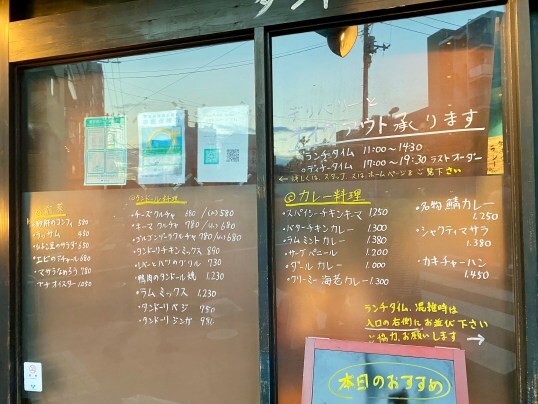 アウト承ります
・ランチタイム 11:00〜1430
・ディナータイム 17:00〜19:30 ラストオーダー
← 詳しくは、スタッフ 又は ホームページを ご覧下さい
580
・ラッサム 450
サラダ 630
・エビのアチャール 680
・マサラなめろう 780
・カキオイスター 1,050
◎タンドール料理
・チーズクルチャ 680/(ハ)580
・キーマ クルチャ 780/(ハ)680
・ゴルゴンゾーラクルチャ780/(ハ)680
・タンドーリチキンミックス 890
グリル 730
・鴨肉のタンドール焼 1.230
・ラム ミックス 1.230
・タンドーリ ベジ 750
・タンドーリ 980
◎カレー料理
・スパイシーチキンキーマ 1.250
・バターチキン カレー 1.300
・ラム ミント カレー 1.380
・サーグ パニール 1.200
・ダール カレー 1.000
・クリーミー 海老 カレー 1.300
・名物 鯖カレー
1.250
・シャクティマサラ
1.380
・カキチャーハン
1,450
ランチタイム、混雑時は
入口の右側に お並び下さい
ご協力、お願いします →
本日のおすすめ